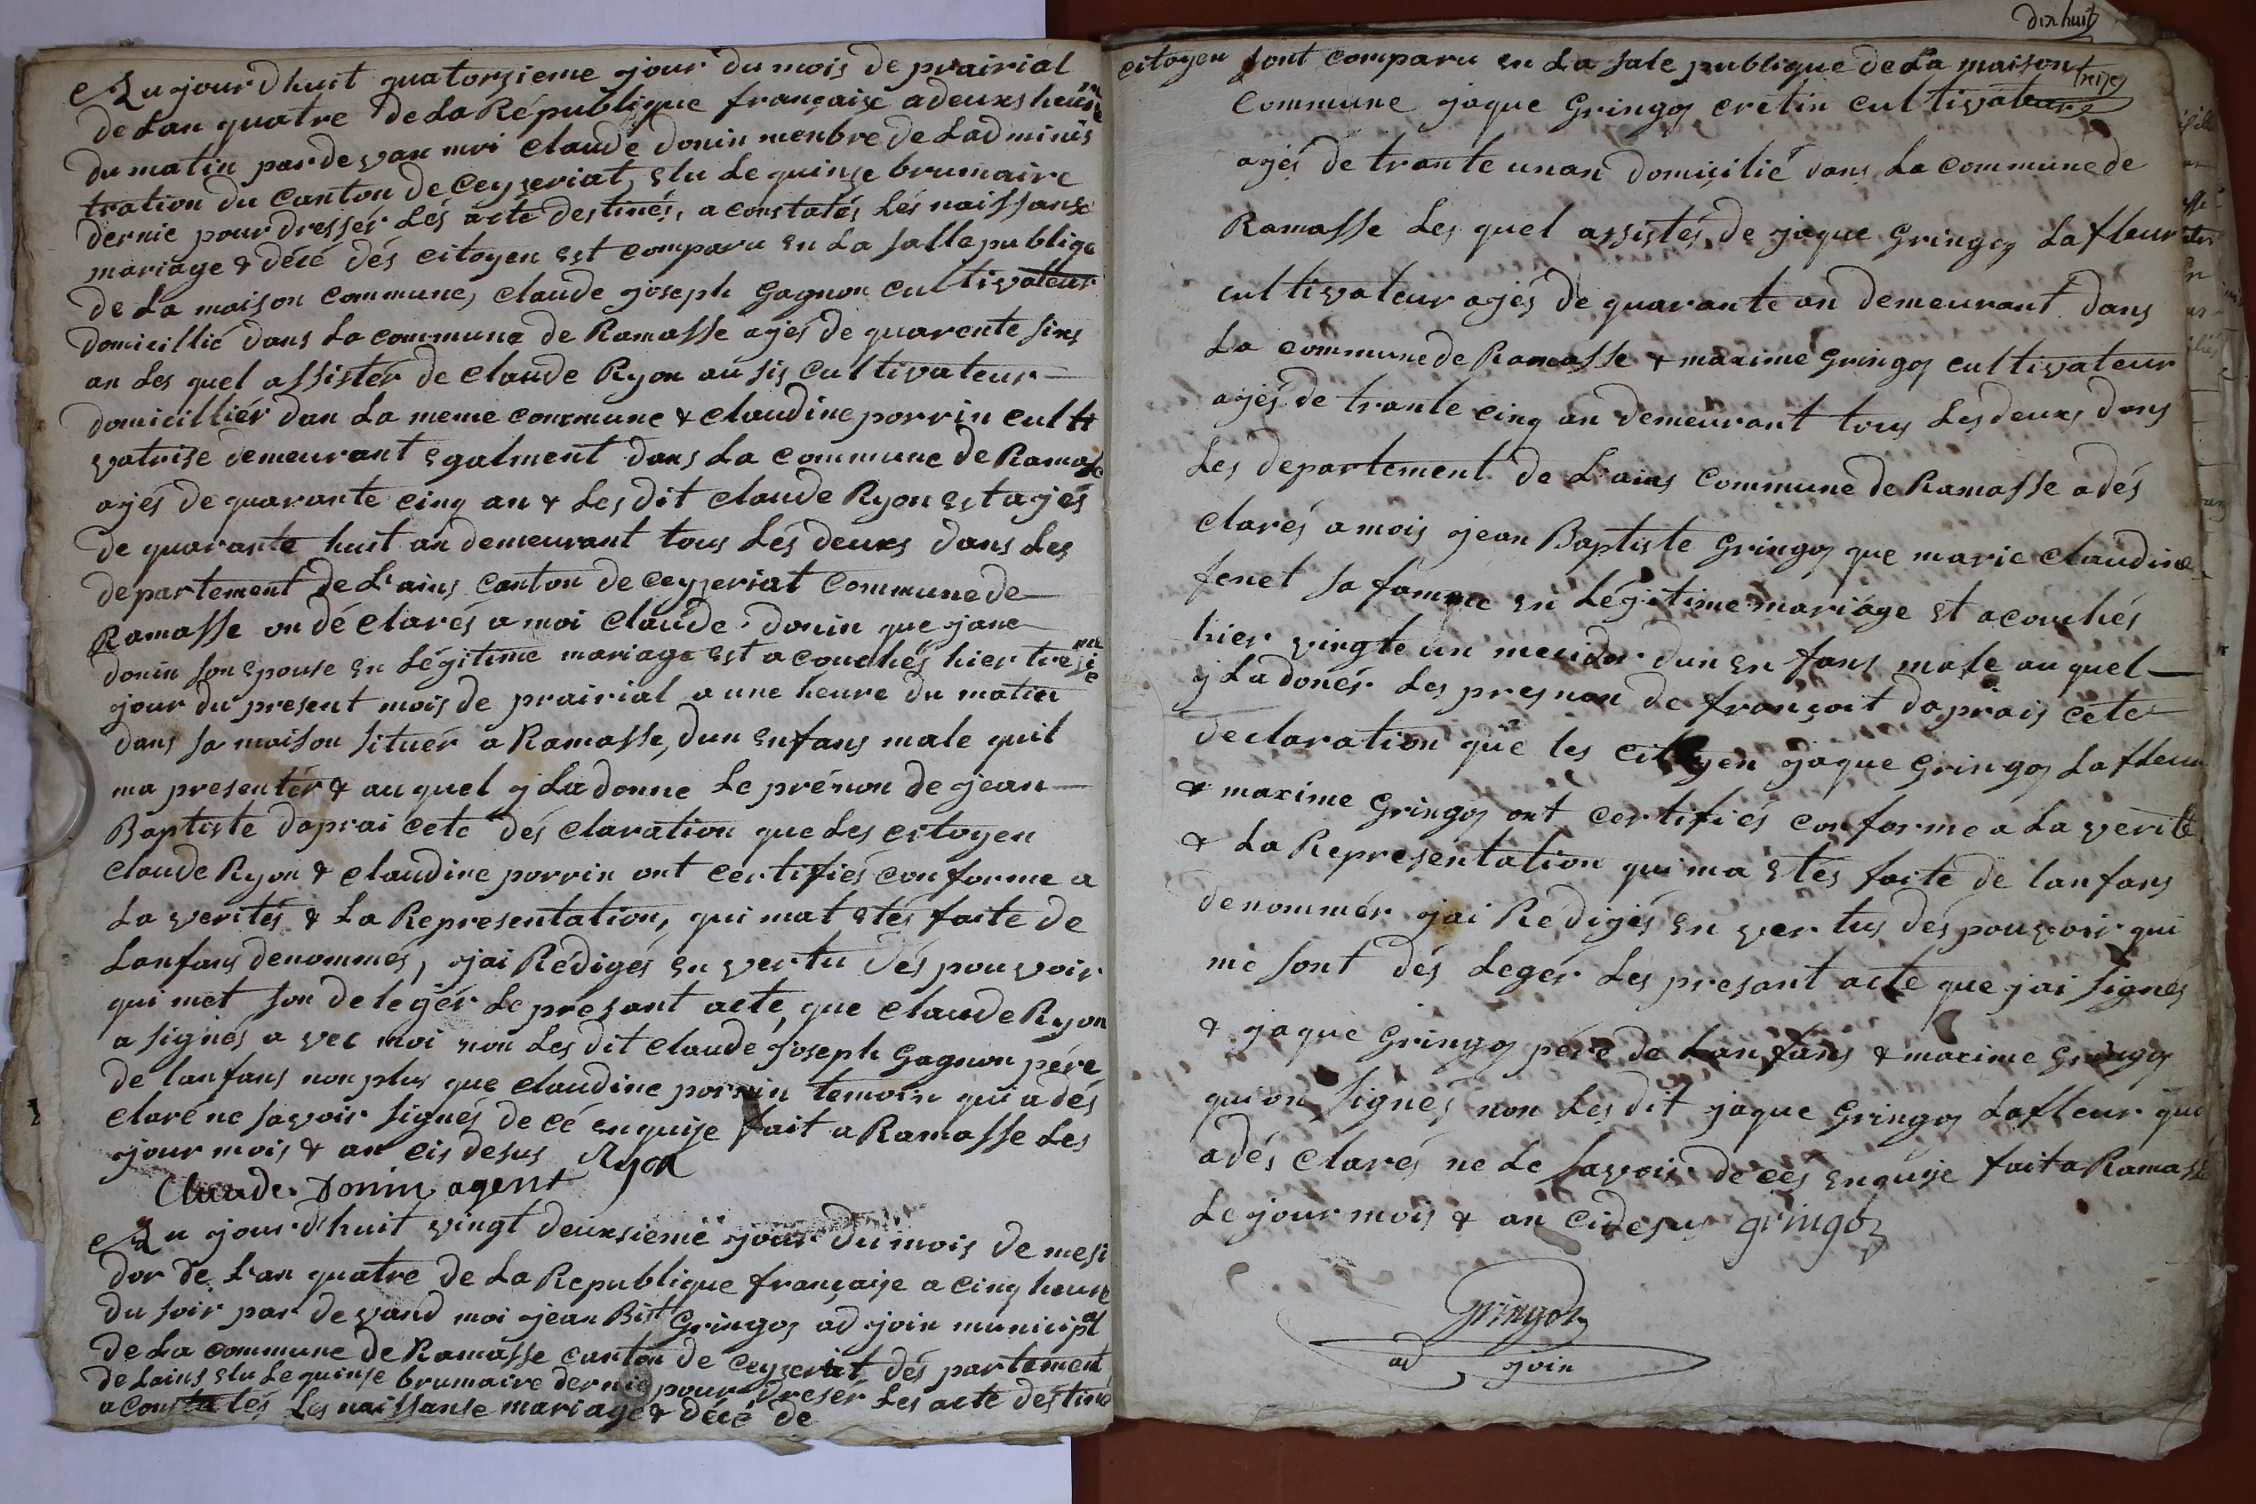 Au jourdhuit quatorsieme jour du mois de prairial
de Lan quatre de La République française a deuxs heure
du matin par de van moi claude donin menbre de Ladminis
tration du canton de Ceyzeriat, elu Le quinze brumaire
dernie pour dressér Lés acte destinés, a constatés Lés naissanse
mariage & décé dés citoyen est comparu en La salle publige
de La maison commune, claude joseph Gagnon cultivateur
domicillié dans La commune de Ramasse agés de quarente sixs
an Les quel assistér de claude Ryon au sis cultivateur
domicilliér dan La meme commune & claudine porrin culti
vatrise demeurant egalment dans La commune de Ramasse
agés de quarante cinq an & Les dit claude Ryon est agés
de quarante huit an demeurant tous Lés deuxs dans Les
departement de L'ains canton de ceyzeriat commune de
Ramasse on dé clarés a moi claude donin que jane
donin son epouse en Légitime mariage est a couchés hier tresie
jour du present mois de prairial a une héure du matin
dans sa maison situér a Ramasse, dun enfans male quil
ma presentér & au quel y La donne Le prénon de jean
Baptiste daprai cete dés claration que Les citoyen
claude Ryon & claudine porrin ont certifiés conforme a
La verités & La Representation, qui mat etés faite de
Lanfans denommés, jai Rédigés en vertu dés pouvoir
qui met son de legér Le présant acte, que claude Ryon
a signés a vec moi non Les dit claude joseph Gagnon pére
de lanfans non plus que claudine porrin temoin qui a dés
claré ne savoir signés de cé enquise fait a Ramasse Les
jour mois & an cis desus Ryon
Claude Donin agent
Au jour d'huit vingt deuxsieme jour du mois de mesi
dor de L'an quatre de La Republique française a cinq heure
du soir par de vand moi jean Bist Gringoz ad join municipal
de La commune de Ramasse canton de ceyzeriat dés partement
de Lains elu Le quinse brumaire dernie pour dresér Les acte destiné
a constatés Les naissanse mariage & décé de
dix huit
citoyen sont comparu en La sale publique de La maison
treize
commune jaque Gringoz cretin cultivateur
agés de trante unan domicilié dans La commune de
Ramasse Les quel assistés de jaque Gringoz Lafleur
cultivateur agés de quarante an demeurant dans
La commune de Ramasse & maxime Gringoz cultivateur
agés de trante cinq an demeurant tous Les deuxs dans
Les departement de L'ains commune de Ramasse a dés
clarés a mois jean Baptiste Gringoz que marie claudine
fenet sa famme en Légitime mariage et acouchés
hier vingte un mecidor dun en fans male au quel
y La donér Les presnon de françoit daprais cete
declaration que les citoyen jaque Gringoz Lafleur
& maxime Gringoz ont certifiés conforme a La verité
& La Representation qui ma etés faite de lanfans
denommér jai Redigés en vertus des pouvoir qui
me sont dés Legér Les presant acte que jai signés
& jaque Gringoz pére de Lanfans & maxime Gringoz
qui on signés non Les dit jaque Gringoz Lafleur qui
a dés clarés ne Le savoir de cés enquise fait a Ramasse
Le jour mois & an cidesus gringoz
Gringoz
ad join